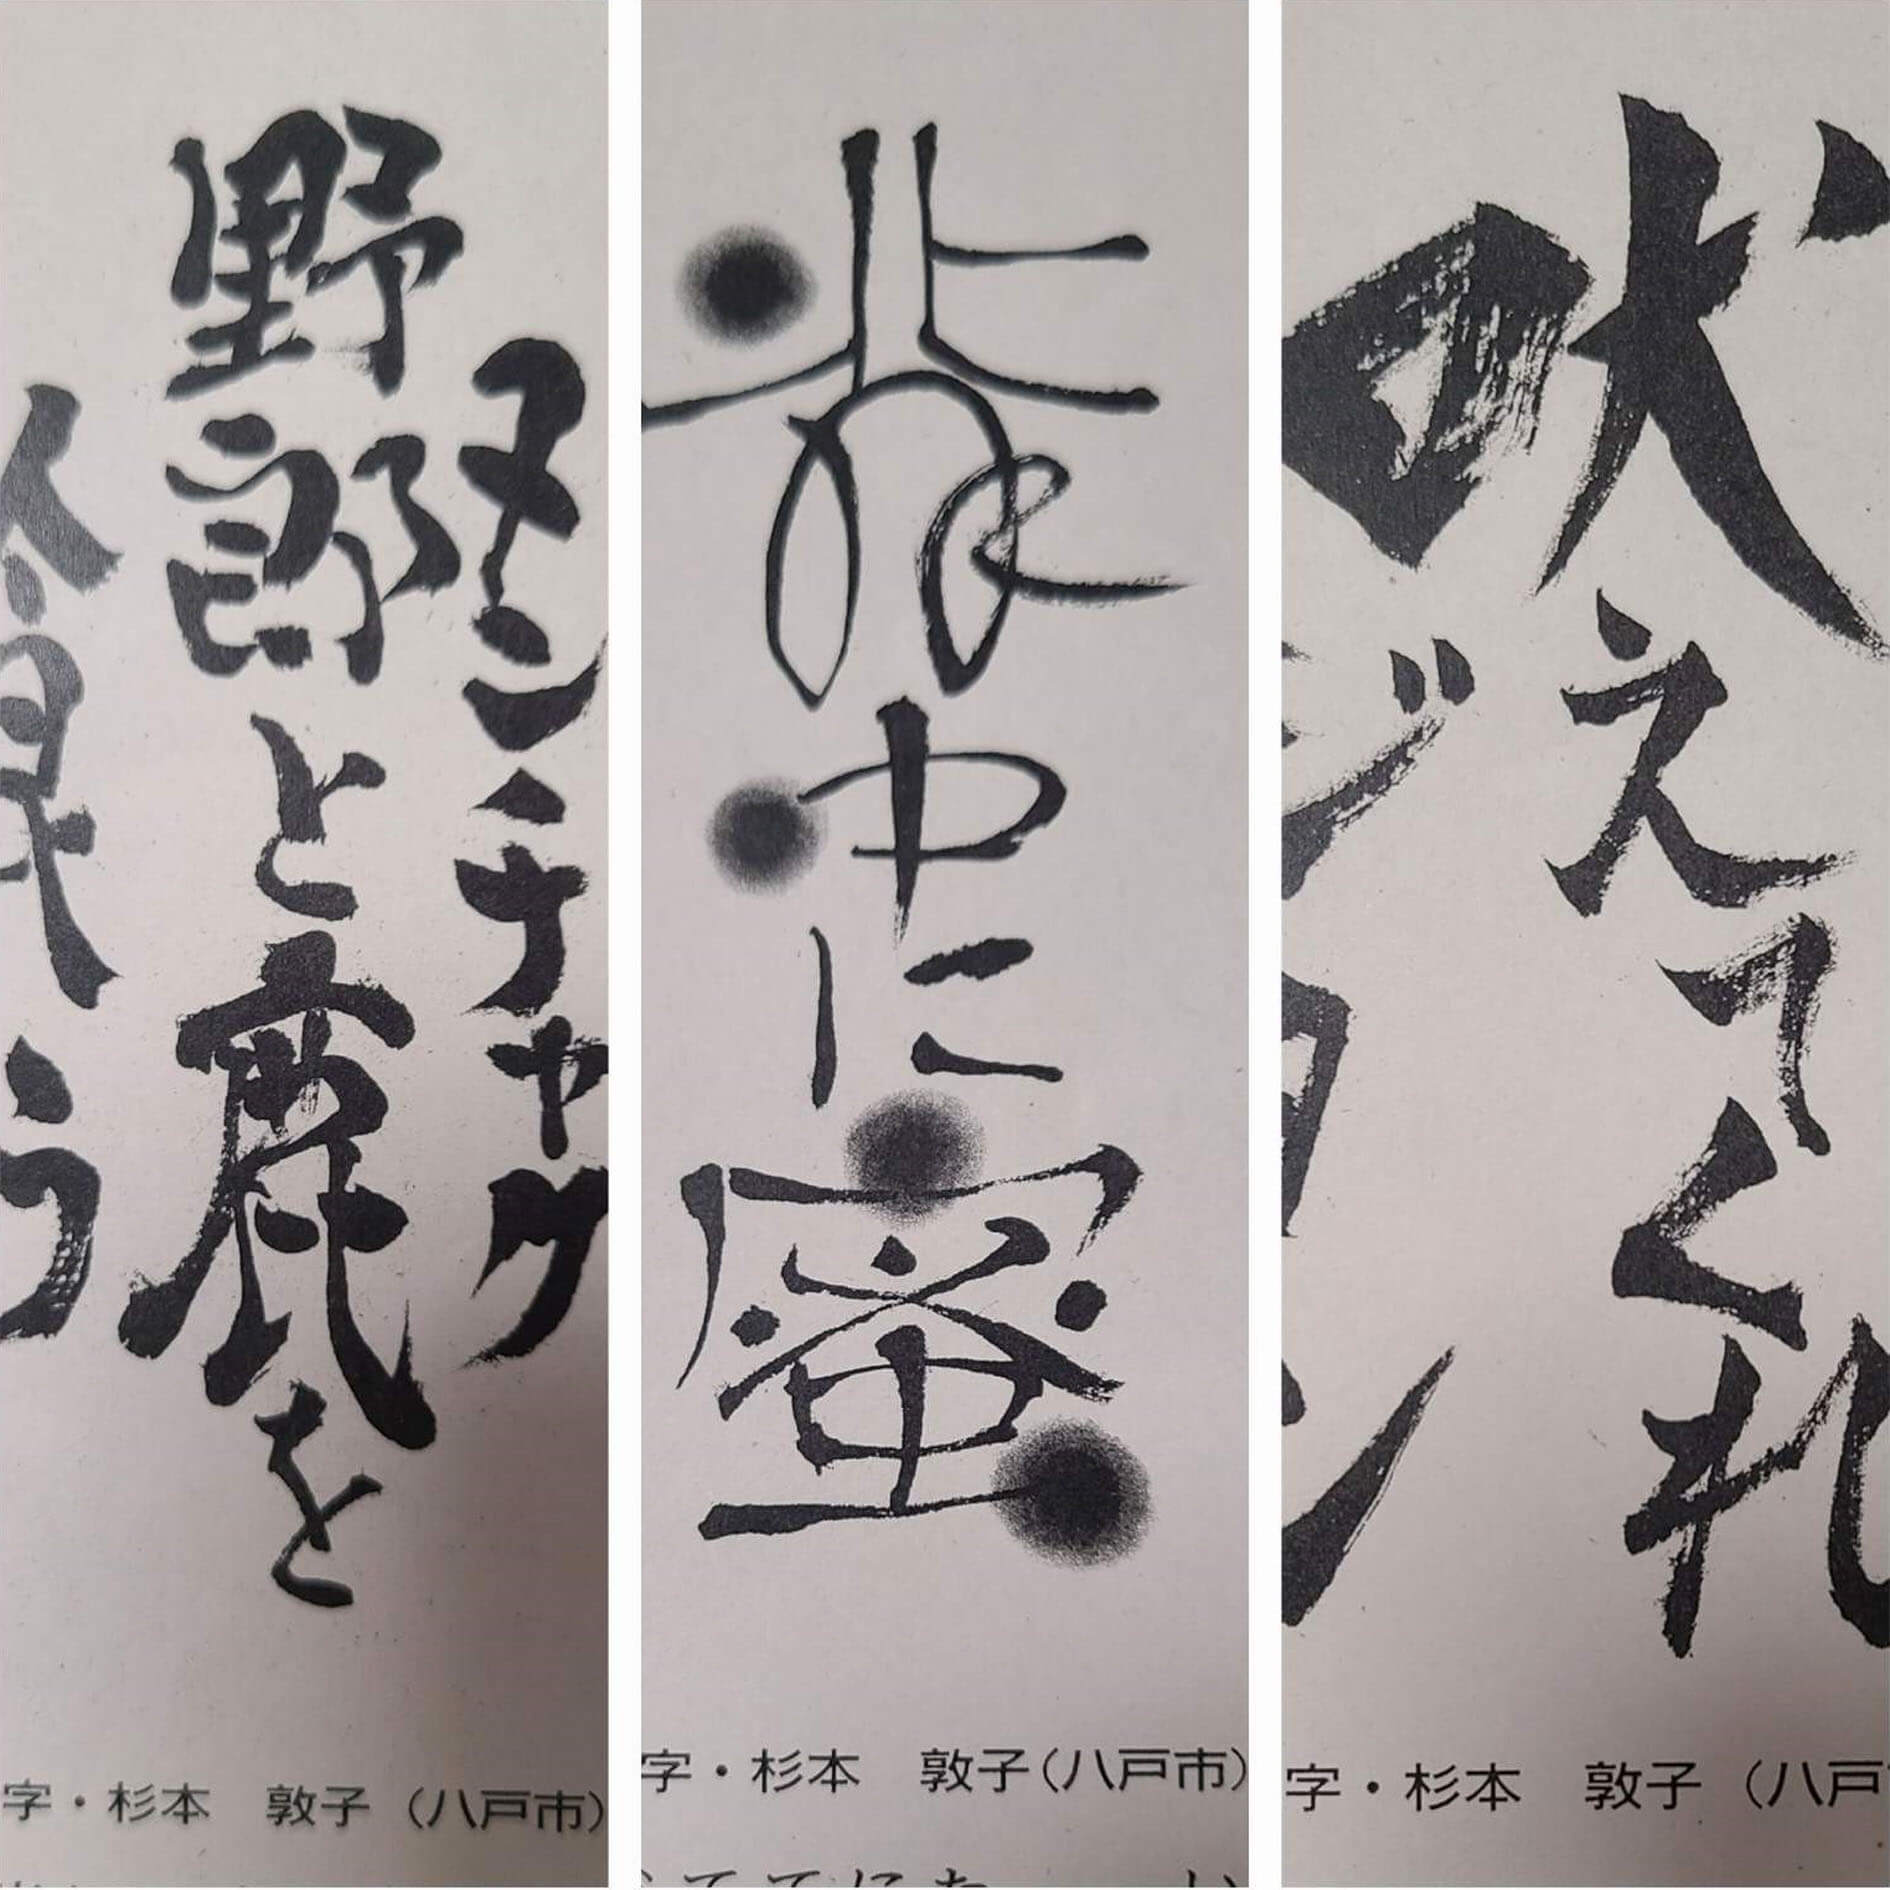 ヌンチャク
野郎と鹿を
字・杉本　敦子（八戸市）
背中に蜜
字・杉本　敦子（八戸市）
吠えてくれ
字・杉本　敦子（八戸